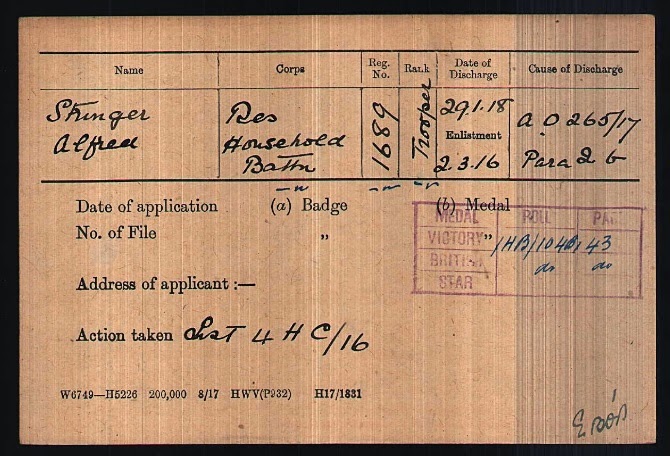 Name Corps Reg. No. Rank Date of Discharge Cause of Discharge
Stringer Res 1689 Trooper 29.1.18 A.O 265/17
Alfred Household Enlistment
Battn 2.3.16 Para 2 b
Date of application (a) Badge (b) Medal
No. of File „ „
MEDAL ROLL PAGE
VICTORY HB/104B1 43
BRITISH do do
STAR
Address of applicant :—
Action taken List 4 H C/16
W6749—H5226 200,000 8/17 HWV(P932) H17/1831